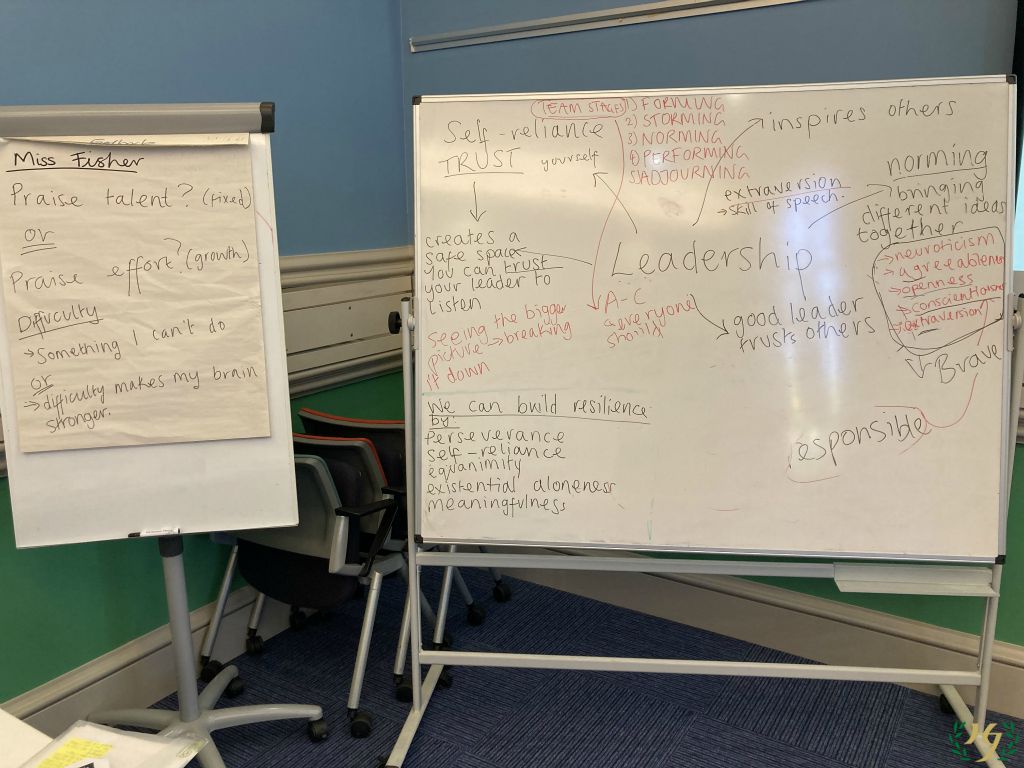 Miss Fisher
Praise talent? (fixed)
or
Praise effort? (growth)
Difficulty
→ Something I can't do
or
→ difficulty makes my brain
stronger.
Self-reliance
TRUST yourself
creates a
safe space
you can trust
your leader to
listen
seeing the bigger
picture → breaking
it down
We can build resilience
by:
perseverance
self-reliance
equanimity
existential aloneness
meaningfulness
TEAM STAGES
1) FORMING
2) STORMING
3) NORMING
4) PERFORMING
5) ADJOURNING
Leadership
A-C
everyone
inspires others
extraversion
→ skill of speech.
norming
bringing
different ideas
together
→ neuroticism
→ agreeableness
→ openness
→ conscientious
→ extraversion
good leader
trusts others
Brave
responsible